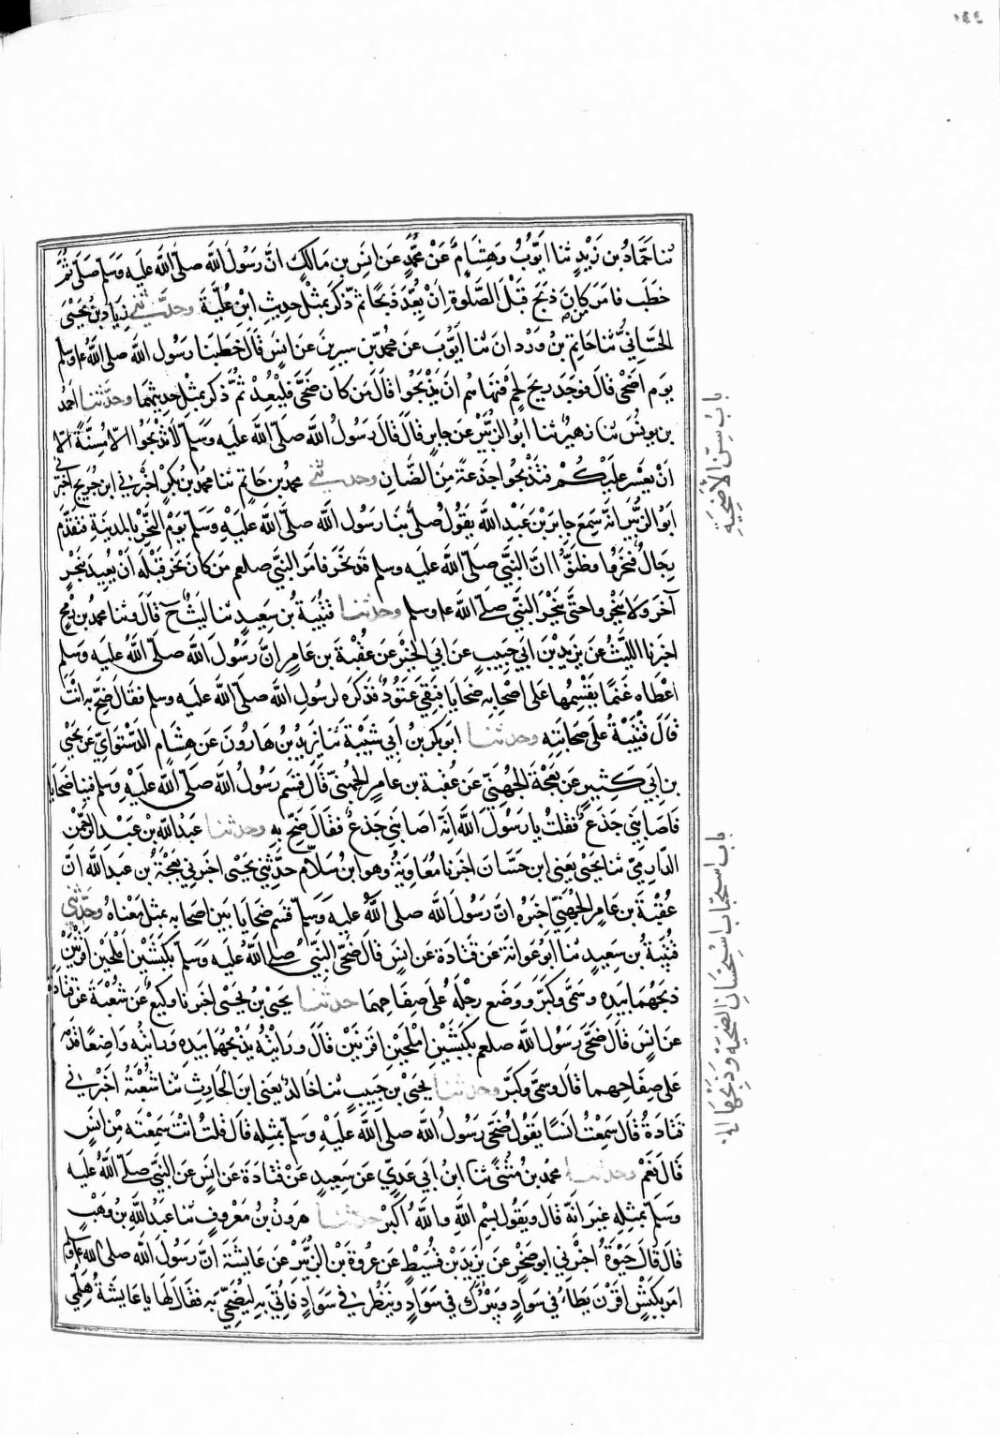 ثنا حَمَّادُ بن زَيْدٍ ثنا أَيّوُبُ وَهِشامٌ عَنْ محمّدٍ عَن انَسِ بن مَالكٍ انَّ رَسُولَ الله صلّى الله عليه وَسَلم صَلّى ثُمَّ
خطَب فامَر مَن كانَ ذبَحَ قَبْلَ الصَّلوة انْ يُعِيدَ ذَبْحًا ثم ذكرَ بمثْلِ حديثِ ابْنِ عُليَّةَ وحدَّثني زِيَادُ بنُ يَحْيَى
الحَسَّانيُّ ثنا حَاتِم بن وَرْدانَ ثنا ايّوب عن محمّد بن سيرينَ عن انَسٍ قالَ خَطَبَنا رَسُول الله صلى الله ع وسلم
يوَم اضحًى قالَ فوَجَد ريحَ لحمٍ فنهَاهُم انَ يذْبحُوا قالَ مَن كان ضَحَّى فليُعِدْ ثُمَّ ذكر بمِثلِ حديثِهمَا وحَدَّثنا احمَدُ
بن يونُسَ ثنا زهيرٌ ثنا ابوُ الزبَيْر عَن جابرٍ قالَ قالَ رَسُولُ الله صلّى الله عليه وَسَلّم لَا تذبَحُوا الّا مُسِنَّةً الّا
انْ يَعْسُر عليَكُمْ فتَذْبحُوا جذعَةً مِنَ الضَّانِ وحدثني محمد بن حاتِم ثنا محمّد بن بَكرٍ اخبَرَني ابنُ جُرَيج اخبرَني
ابوُ الزبَيْر انّه سَمِعَ جابرَ بْنَ عَبْد الله يقُولُ صلّى بنَا رَسُول الله صلّى الله عَليَهْ وَسَلم يوْمَ النَّحْرِ بالمدينَةِ فتَقدَّم
رِجالٌ فنحَرُوا وظَنُّوا انّ النَّبيَّ صلّى الله عليَه وسلم قد نحَرَ فامَر النبيُّ صلعم مَن كانَ نحَرَ قبْلَه انْ يُعيدَ بنحْرٍ
آخرَ ولا ينحَرُوا حتّى ينحَرَ النبيّ صلى الله ع وسلم وحدثنا قتُيْبَةُ بن سَعِيدٍ ثنا ليَثٌ ح قالَ وثنا محمدُ بنُ رُمحٍ
اخبرنا اللّيْثُ عن يزيدَ بن ابي حَبيبٍ عن ابي الخيْر عَن عُقْبَة بن عَامِرٍ انّ رَسُولَ الله صلّى الله عليَه وسَلّم
اعْطاه غنَمًا يقْسِمُها على اصْحَابه ضحَايا فبَقِيَ عَتُودٌ فذكَرهُ لرسُولِ الله صلى الله عليه وسلم فقالَ ضحّ به انْتَ
قالَ قُتَيْبَةُ عَلى صحَابَتِه وحدثنا ابوُ بكر بن ابي شَيْبَة ثنا يزيدُ بن هَارُونَ عَن هِشام الدَّسْتوَائي عن يحْيَى
بن ابي كَثيرٍ عَن بَعْجَةَ الجُهَنيِّ عَن عُقبَة بن عامِرٍ الجُهَنيِّ قالَ قسَم رَسُولُ الله صَلّى الله عَليَهْ وَسَلم فينَا ضحَايا
فاصَابَني جَذعٌ فقلتُ يا رَسُولَ الله انَّه اصَابَني جَذعٌ فقالَ ضَحِّ بهِ وحدثنا عَبدُ الله بْن عَبدِ الرّحْمنِ
الدّارِميّ ثنا يحَيْى يعنى ابن حَسَّانَ اخبرنا معُاوِيَةُ وهوَ ابن سَلّامٍ حدّثني يحَيْى اخبرَني بَعجَةُ بن عبد الله انّ
عُقْبَة بن عامرٍ الجُهَنيّ اخبَره انّ رَسُول الله صلى الله عليَه وَسَلم قسَم ضحَايا بينَ اصحَابه بمِثل مَعْناهُ وحَدّثني
قُتَيْبَةُ بن سَعِيدٍ ثنا ابوُ عَوانة عَن قتَادَة عَن انَسٍ قالَ ضحّى النبيُّ صلّى الله عليَه وسَلّم بكَبْشَيْن امْلحَيْن اقْرنَيْنِ
ذبحهُما بيَدِه وَسَمَّى وكبَّر ووَضَع رِجْلَهُ عَلى صِفاحِهِمَا حدثنا يحَيى بن يحيَى اخبرنا وكيعٌ عَن شعْبَةَ عَن قتادَة
عَن انَسٍ قالَ ضَحّى رَسُولُ الله صلعم بكبشَيْنِ امْلحَيْنِ اقرنيَنْ قالَ ورَايتْهُ يذْبحُهما بيَدِهِ ورَايتُه وَاضِعًا قدَمَهُ
عَلى صِفاحِهِما قالَ وسَمّى وكبَّر وحدثنا يحيَى بن حَبيبٍ ثنا خالدٌ يعَنى ابنَ الحَارِثِ ثنا شُعْبَةُ اخَبرَني
قتادَةُ قالَ سَمِعْتُ انَسًا يقَولُ ضَحّى رَسُولُ الله صلى الله عَليَهِ وَسَلّم بمثلِه قالَ قُلتُ انْتَ سَمِعْتَه مِنْ انَسٍ
قالَ نعَمْ وحدثنا محمّد بن مُثنَّى ثنا ابنُ ابي عَديٍّ عَن سَعِيدٍ عَنْ قَتَادَة عَن انَسٍ عَن النَّبيّ صَلّى اللهُ عليَه
وسَلّم بمثِلهِ غيرَ انّه قالَ ويَقُولُ بسِم اللهِ واللهُ اكبَرْ حدثنا هَرُونُ بن مَعْرُوفٍ ثنا عَبدُ اللهِ بن وَهْبٍ
قالَ قالَ حَيْوَةُ اخبرَني ابوُ صَخْرٍ عَن يَزيدَ بْن قُسَيْطٍ عَن عُروَةَ بْنِ الزبَيْر عَن عَايشَةَ انَّ رَسُولَ الله صلى الله ع وسلم
امَر بكَبْشٍ اقرَن يَطَأُ في سَوَادٍ ويَبْرُك في سَوَادٍ ويَنظُر في سَوادٍ فَاُتيَ به ليُضَحِّيَ به فقالَ لهَا يا عَايشةُ هَلُمّي
باب سِنِّ الأُضْحِيَة
باب استحبَاب استحْسَانِ الضَحيّة وذَبْحِهَا